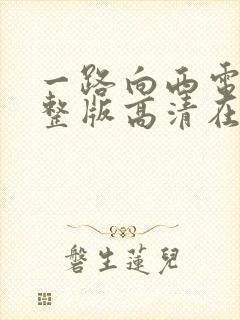 一路向西电
整版高清在
磐生莲儿